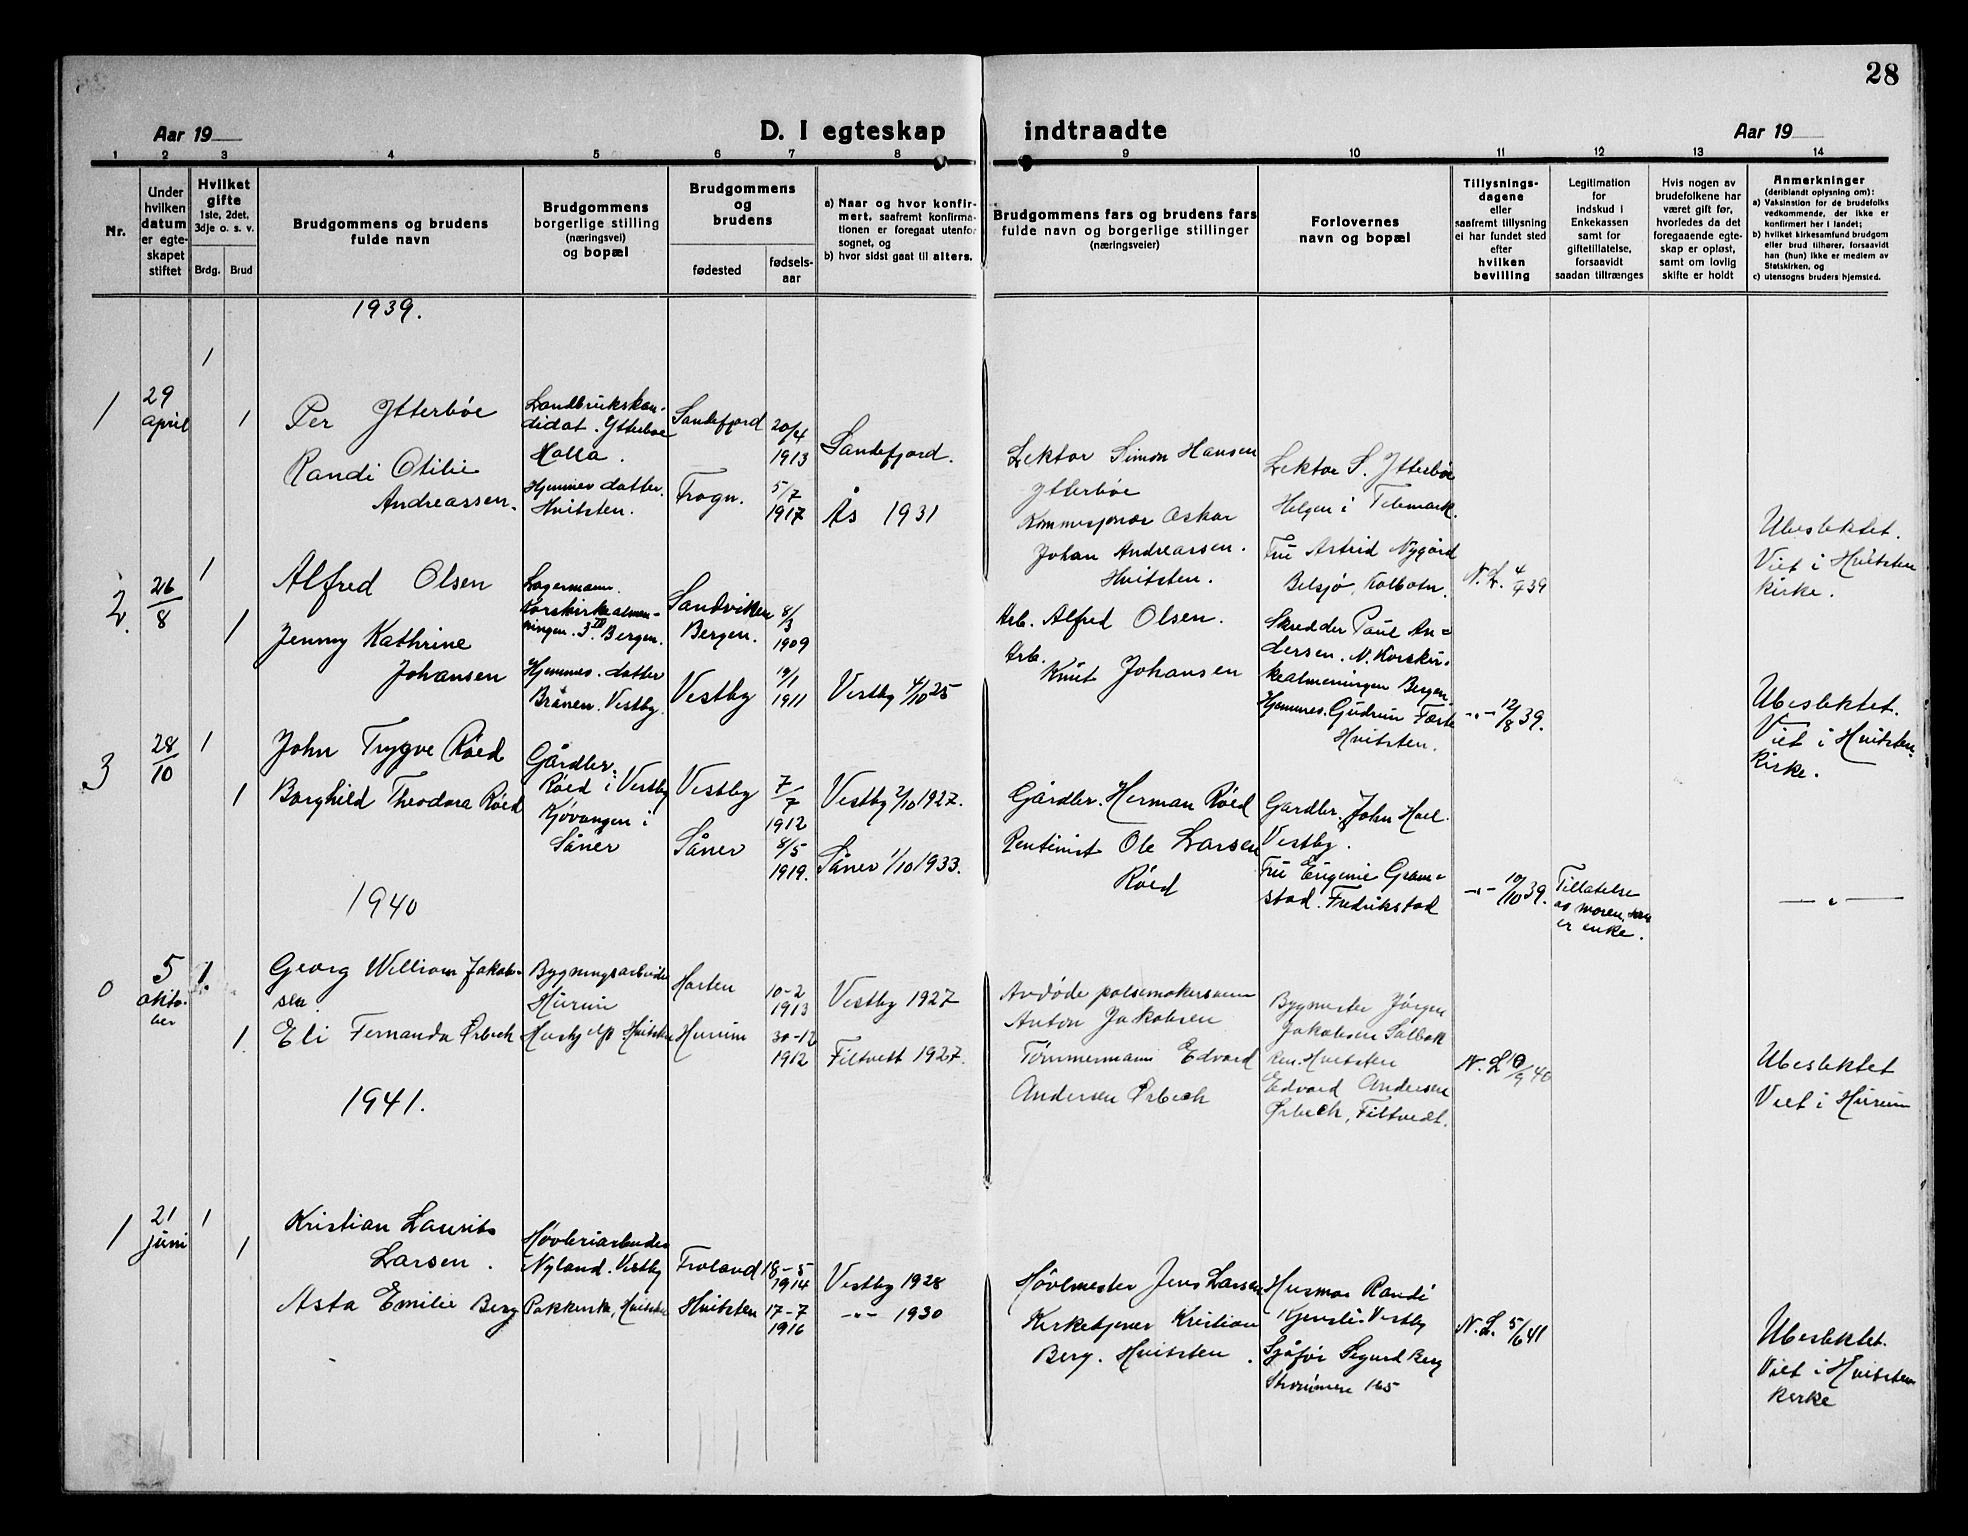 28
Aar 19
D. I egteskap
indtraadte
Aar 19
1 2 3 4 5 6 7 8 9 10 11 12 13 14
Nr.
Under
hvilken
datum
er egte-
skapet
stiftet
Hvilket
gifte
1ste, 2det,
3dje o. s. v.
Brdg. Brud
Brudgommens og brudens
fulde navn
Brudgommens
borgerlige stilling
(næringsvei)
og bopæl
Brudgommens
og
brudens
fødested
fødsels-
aar
a) Naar og hvor konfir-
mert, saafremt konfirma-
tionen er foregaat utenfor
sognet, og
b) hvor sidst gaat til alters.
Brudgommens fars og brudens fars
fulde navn og borgerlige stillinger
(næringsveier)
Forlovernes
navn og bopæl
Tillysnings-
dagene
eller
saafremt tillysning
ei har fundet sted
efter
hvilken
bevilling
Legitimation
for
indskud i
Enkekassen
samt for
giftetillatelse,
forsaavidt
saadan tiltrænges
Hvis nogen av
brudefolkene har
været gift før,
hvorledes da det
foregaaende egte-
skap er opløst,
samt om lovlig
skifte er holdt
Anmerkninger
(deriblandt oplysning om):
a) Vaksinstion for de brudefolks
vedkommende, der ikke er
konfirmert her i landet;
b) hvilket kirkesamfund brudgom
eller brud tilhører, forsaavidt
han (hun) ikke er medlem av
Statskirken, og
c) utensogns bruders hjemsted.
1939.
1
29
april
1
1
Per Ytterbøe
Randi Otilie
Andreassen.
Landbrukskan-
didat. Ytterbøe
Holla.
Hjemmev. datter.
Hvitsten.
Sandefjord
Trogn.
20/4
1913
5/7
1917
Sandefjord.
Ås 1931
Lektor Simon Hansen
Ytterbøe
Kommisjonær Oskar
Johan Andreassen.
Hvitsten.
Lektor S. Ytterbøe
Helgen i Telemark.
Fru Astrid Nygård
Belsjø, Kolbotn.
N.L. 4/4 39
Ubeslektet.
Viet i Hvitsten
kirke.
2.
26/8
1
1
Alfred Olsen
Jenny Kathrine
Johansen
Lagermann.
Korskirkealmen-
ningen. 3 Bergen.
Hjemmev. datter
Brånen. Vestby.
Sandviken
Bergen.
Vestby
8/3
1909
1911
Vestby 4/10 25
Arb. Alfred Olsen.
Arb.
Knut Johansen
Skredder Paul An=
dersen. N. Korskir-
kealmeningen Bergen.
Hjemmev. Gudrun
Hvitsten.
-"- 12/8 39.
Ubeslektet.
Viet i Hvitsten
kirke.
3
28/10
1
1
John Trygve Røed
Borghild Theodora Røed
Gårdbr.
Røed i Vestby
Kjøvangen i
Såner
Vestby
Såner
7/7
1912
8/5
1919.
Vestby 2/10 1927.
Såner 1/10 1933.
Gårdbr. Herman Røed
Rentenist Ole Larsen
Røed
Gardbr. John Hoel.
Vestby.
Fru Eugenie Gram-
stad. Fredrikstad
-"- 10/10 39.
Tillatelse
av moren, som
er enke.
— " —
1940
0
5
okto-
ber
1
1.
Georg William Jakob-
sen.
Eli Fernanda Ørbech
Bygningsarbeider
Hurum
Hushjelp Hvitsten
Horten
Hurum
10-2
1913
30-12
1912
Vestby 1927
Filtvett 1927.
Avdøde pølsemakersvenn
Anton Jakobsen
Tømmermann Edvard
Andersen Ørbech
Bygmester Jørgen
Jakobsen Solbak
ken. Hvitsten
Edvard Andersen
Ørbech, Filtvedt.
N.L. 10/9 40
Ubeslektet
Viet i Hurum
1941.
1
21
juni
1
1
Kristian Laurits
Larsen.
Asta Emilie Berg
Høvleriarbeider
Nyland. Vestby
Pakkerske, Hvitsten
Froland
Hvitsten
18-5
1914
17-7
1916
Vestby 1928
-"- 1930
Høvlmester Jens Larsen
Kirketjener Kristian
Berg. Hvitsten.
Husmor Randi
Kjensli. Vestby
Sjåfør Sigurd Berg
165
N.L. 5/6 41
Ubeslektet.
Viet i Hvitsten
kirke